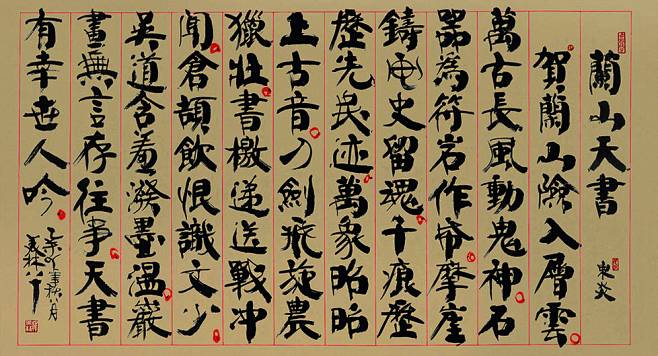 蘭山天書 東炎
賀蘭山險入層雲
萬古長風動鬼神石
器為符岩作帋摩崖
鑄史留魂千痕歷
歷先民迹萬象昭昭
上古音刀劍飛旋農
獵壯書檄递送戰冲
闻倉頡飲恨識文少
吳道含羞潑墨温巖
畫無言存往事天書
有幸世人吟